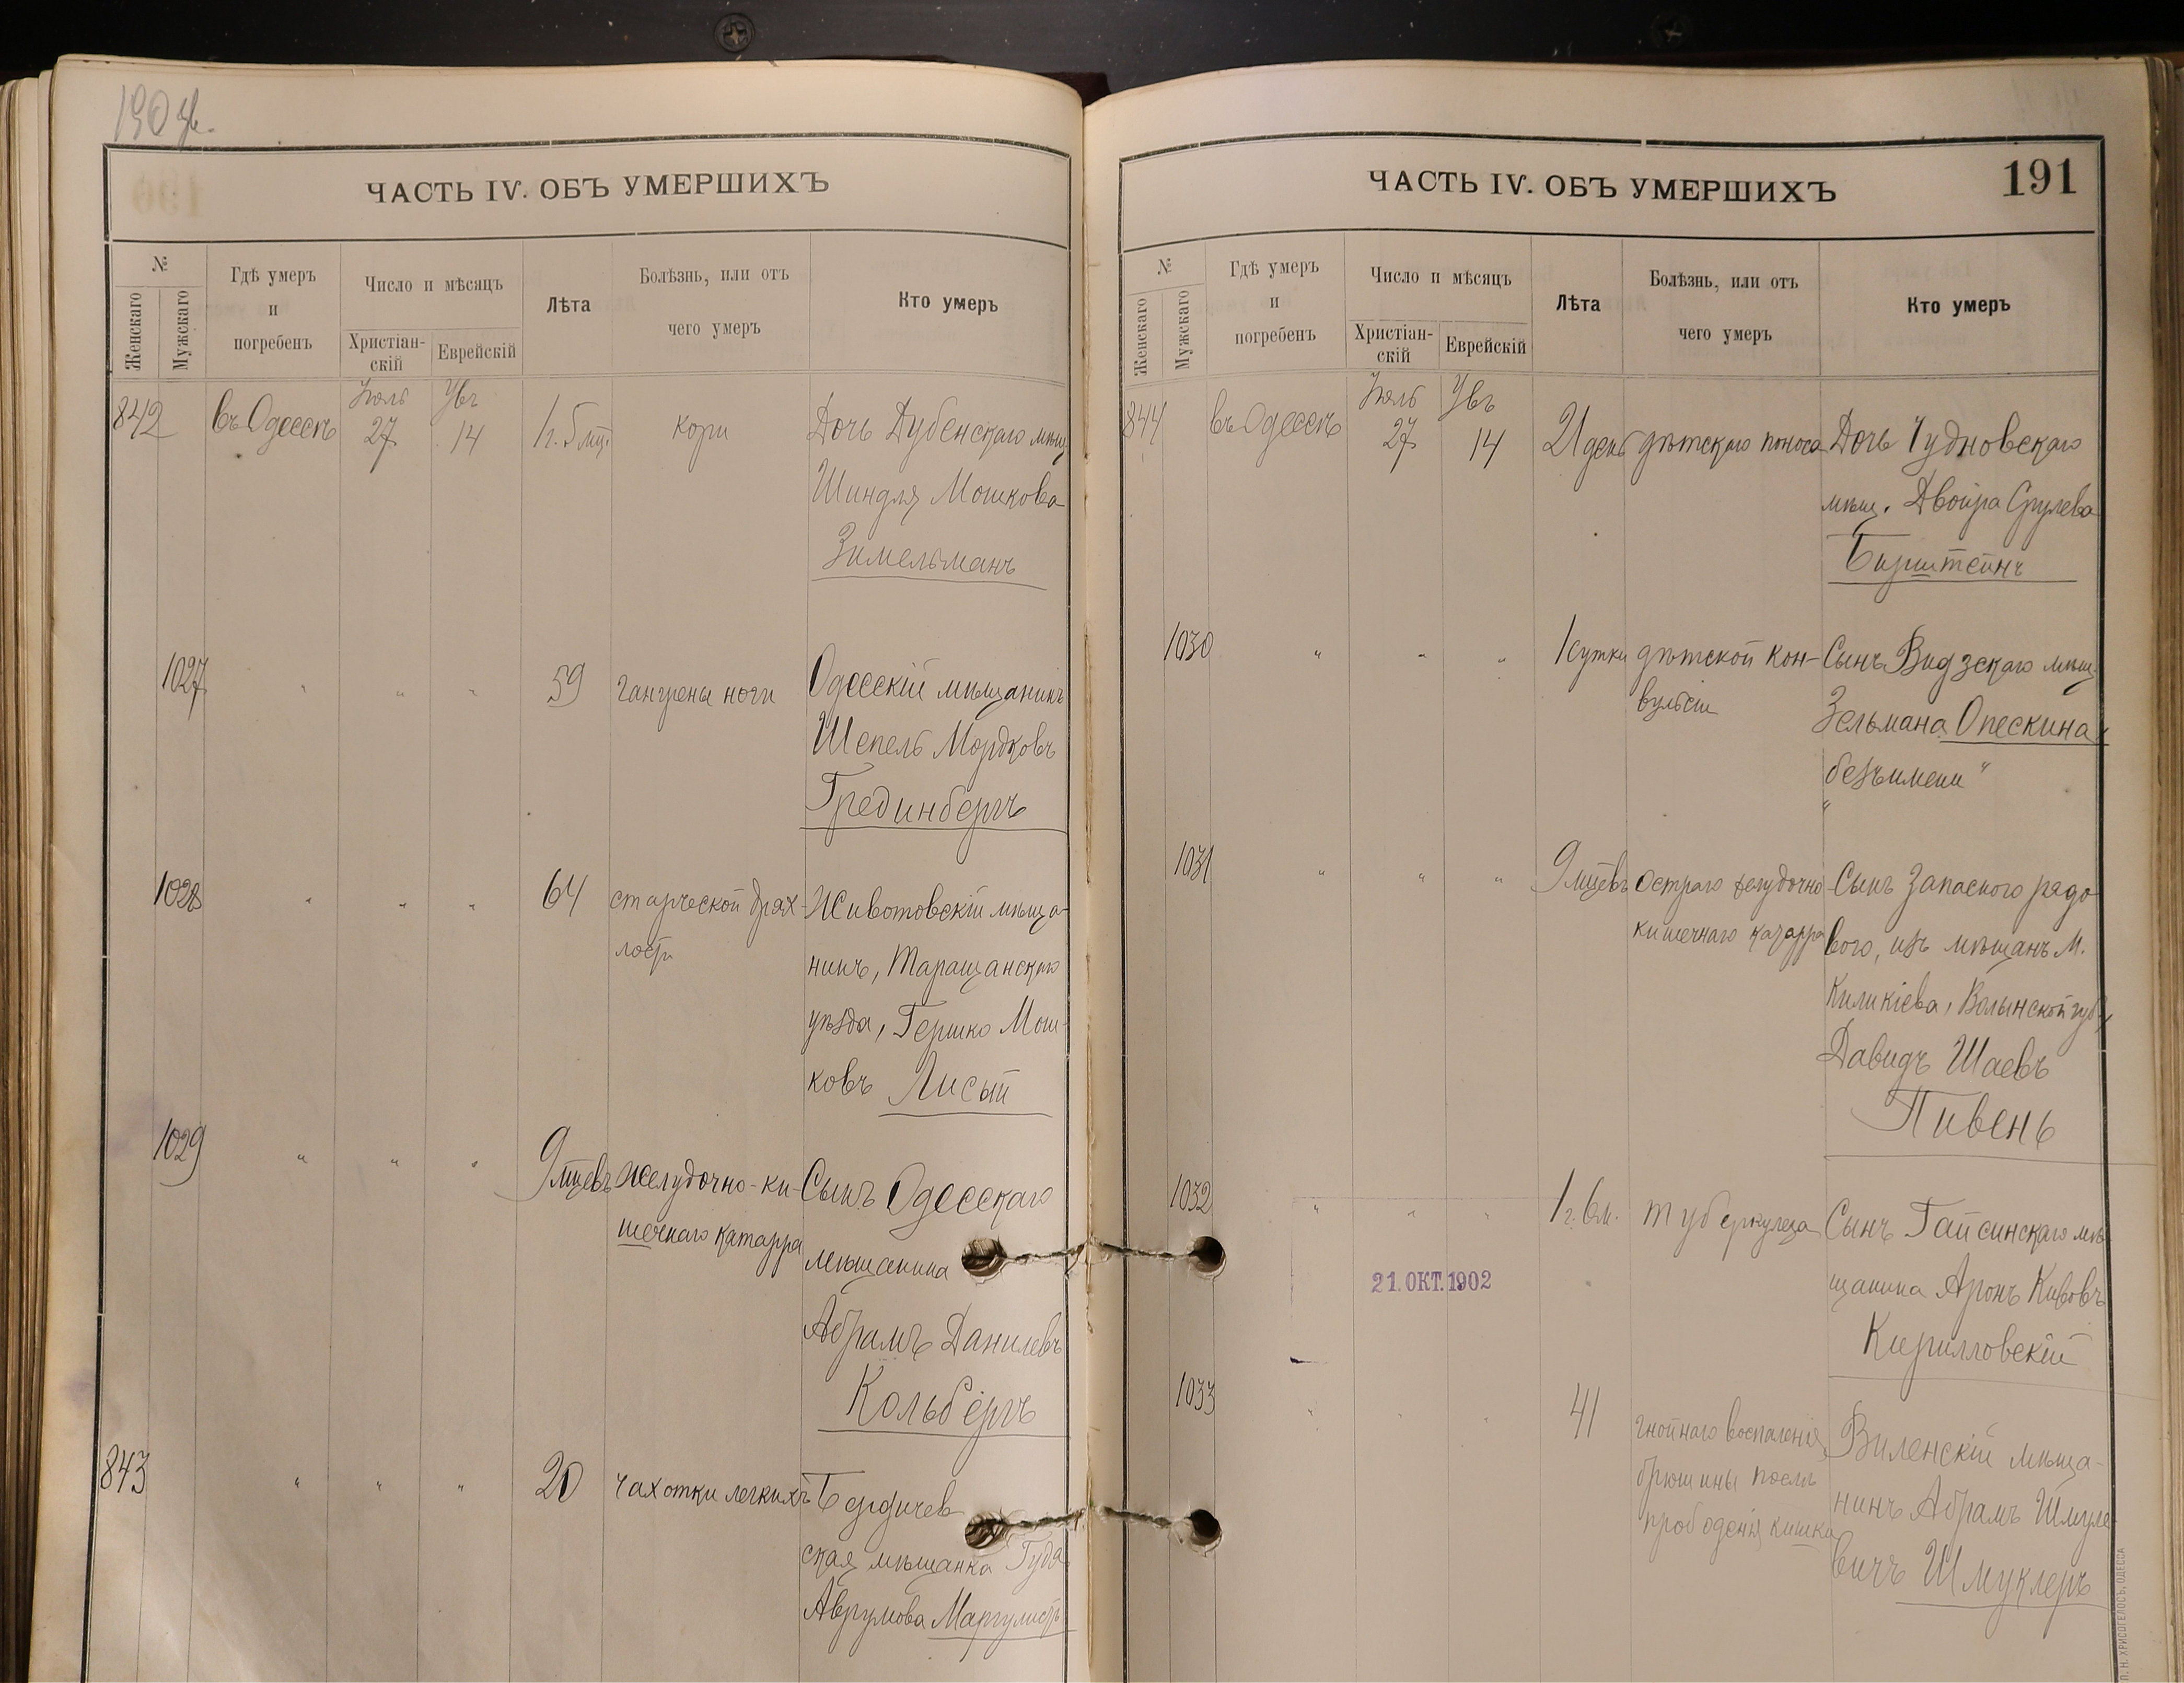 190 об.
ЧАСТЬ IV. ОБЪ УМЕРШИХЪ
№
Женскаго
Мужскаго
Гдѣ умеръ
и
погребенъ
Число и мѣсяцъ
Христіан-
скій
Еврейскій
Лѣта
Болѣзнь, или отъ
чего умеръ
Кто умеръ
842
въ Одессѣ
Іюль
27
14
1 г. 5 мц.
кори
Дочь Дубенскаго мѣщ.
Шиндля Мошкова
Зимельманъ
1027
" " "
59
гангрены ноги
Одесскій мѣщанинъ
Шепель Мордковъ
Грединбергъ
1028
" " "
64
старческой дрях-
лости
Животовскій мѣща-
нинъ, Таращанскаго
уѣзда, Гершко Мош-
ковъ Лисый
1029
" " "
9 мцевъ
желудочно-ки-
шечнаго катарра
Сынъ Одесскаго
мѣщанина
Абрамъ Данилевъ
Кольбергъ
843
" " "
20
чахотки легкихъ
Бердичев
ская мѣщанка
Аврумова Маргулисъ
ЧАСТЬ IV. ОБЪ УМЕРШИХЪ
191
№
Женскаго
Мужскаго
Гдѣ умеръ
и
погребенъ
Число и мѣсяцъ
Христіан-
скій
Еврейскій
Лѣта
Болѣзнь, или отъ
чего умеръ
Кто умеръ
844
въ Одессѣ
Іюль
27
14
21 день
дѣтскаго поноса
Дочь Чудновскаго
мѣщ. Двойра Срулева
Бирштейнъ
1030
" " "
1 сутки
дѣтской кон-
вульсіи
Сынъ Видзскаго мѣщ.
Зельмана Опескина,
"безъ имени"
1031
" " "
9 мцевъ
остраго желудочно-
кишечнаго катарра
Сынъ Запасного рядо
вого, изъ мѣщанъ м.
Киликіева, Волынской губ.,
Давидъ Шаевъ
Пивень
1032
" " "
1 г. 6 м.
туберкулеза
Сынъ Гайсинскаго мѣ-
щанина Аронъ Кивовъ
Кирилловскій
21. ОКТ. 1902
1033
" " "
41
гнойнаго воспаленія
брюшины послѣ
прободенія кишки
Виленскій мѣща-
нинъ Абрамъ Шмуле-
вичъ Шмуклеръ
П. Н. ХРИСОГЕЛОСЪ, ОДЕССА